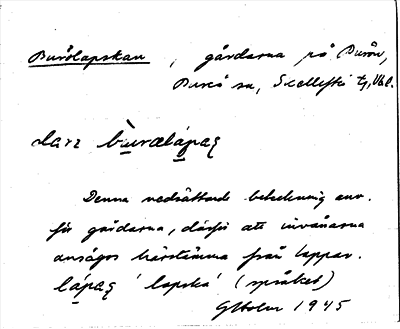 Burölapskan, gårdarna på Burön,
Bureå sn, Skellefteå tg, Vbl.
bùrœlápaʂ
Denna nedsättande beteckning anv.
för gårdarna, därför att invånarna
ansågos härstamma från lappar.
lápaʂ 'lapska' (språket)
GHolm 1945